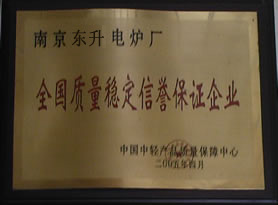 南京东升电炉厂
全国质量稳定信誉保证企业
中国中轻产品质量保障中心
二00五年四月